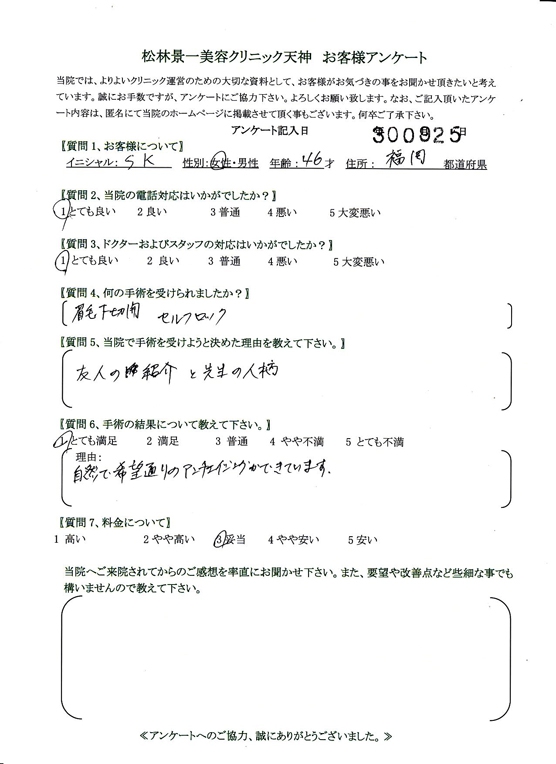 松林景一美容クリニック天神　お客様アンケート
当院では、よりよいクリニック運営のための大切な資料として、お客様がお気づきの事をお聞かせ頂きたいと考え
ています。誠にお手数ですが、アンケートにご協力下さい。よろしくお願い致します。なお、ご記入頂いたアンケ
ート内容は、匿名にて当院のホームページに掲載させて頂く事もございます。何卒ご了承下さい。
アンケート記入日　300925日
〖質問1、お客様について〗
イニシャル：SK　性別：女性・男性　年齢：46才　住所：福岡　都道府県
〖質問2、当院の電話対応はいかがでしたか？〗
1とても良い　2 良い　3 普通　4 悪い　5 大変悪い
〖質問3、ドクターおよびスタッフの対応はいかがでしたか？〗
1とても良い　2 良い　3 普通　4 悪い　5 大変悪い
〖質問4、何の手術を受けられましたか？〗
眉毛下切開　セルフロック
〖質問5、当院で手術を受けようと決めた理由を教えて下さい。〗
友人の紹介と先生の人柄
〖質問6、手術の結果について教えて下さい。〗
1とても満足　2 満足　3 普通　4 やや不満　5 とても不満
理由：
自然で希望通りのアンチエイジングができています.
〖質問7、料金について〗
1 高い　2 やや高い　3妥当　4 やや安い　5 安い
当院へご来院されてからのご感想を率直にお聞かせ下さい。また、要望や改善点など些細な事でも
構いませんので教えて下さい。
≪アンケートへのご協力、誠にありがとうございました。≫